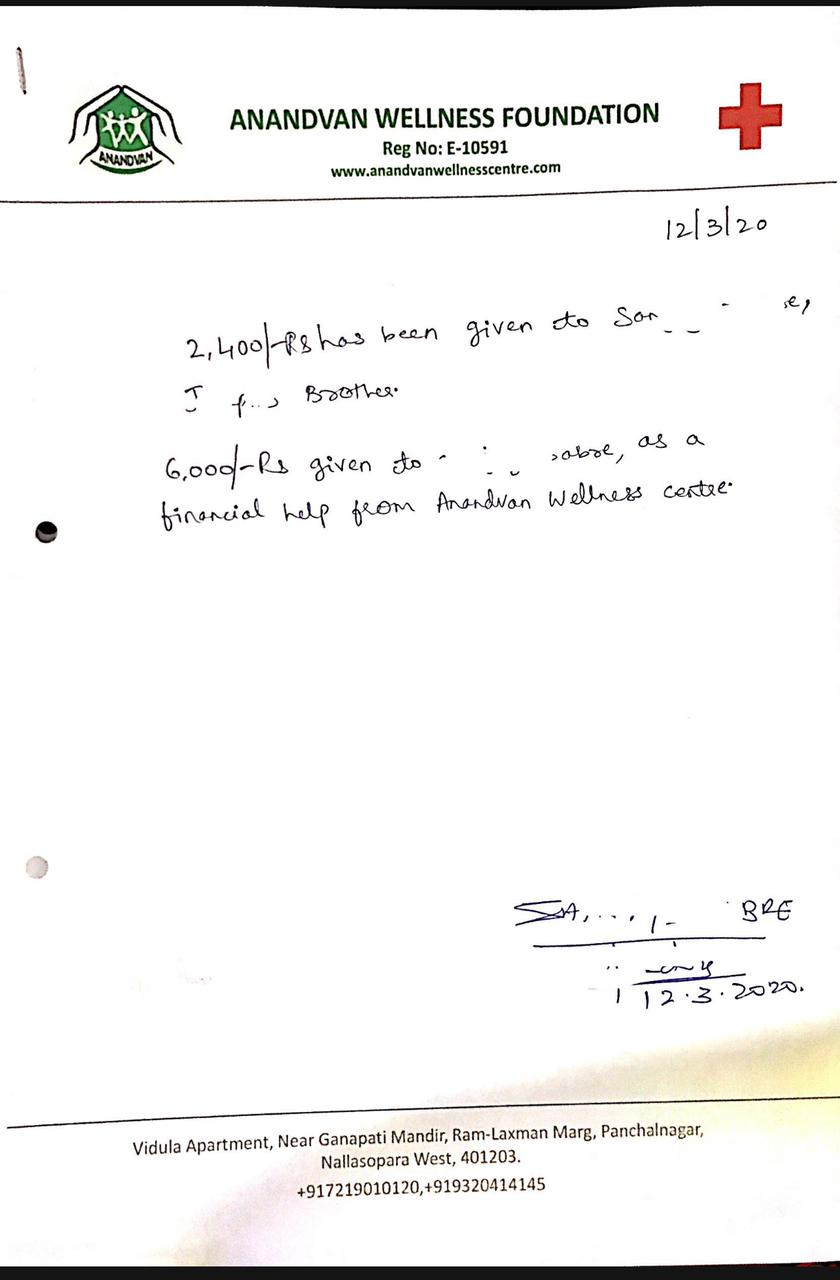 ANANDVAN
ANANDVAN WELLNESS FOUNDATION
Reg No: E-10591
www.anandvanwellnesscentre.com
12/3/20
2,400/-Rs has been given to
Brother.
6,000/-Rs given to as a
financial help from Anandvan Wellness centre.
BRE
12.3.2020.
Vidula Apartment, Near Ganapati Mandir, Ram-Laxman Marg, Panchalnagar,
Nallasopara West, 401203.
+917219010120,+919320414145